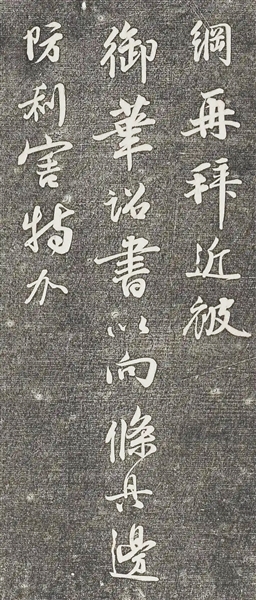 綱再拜近被
御筆詔書以向條具邊
防利害特加